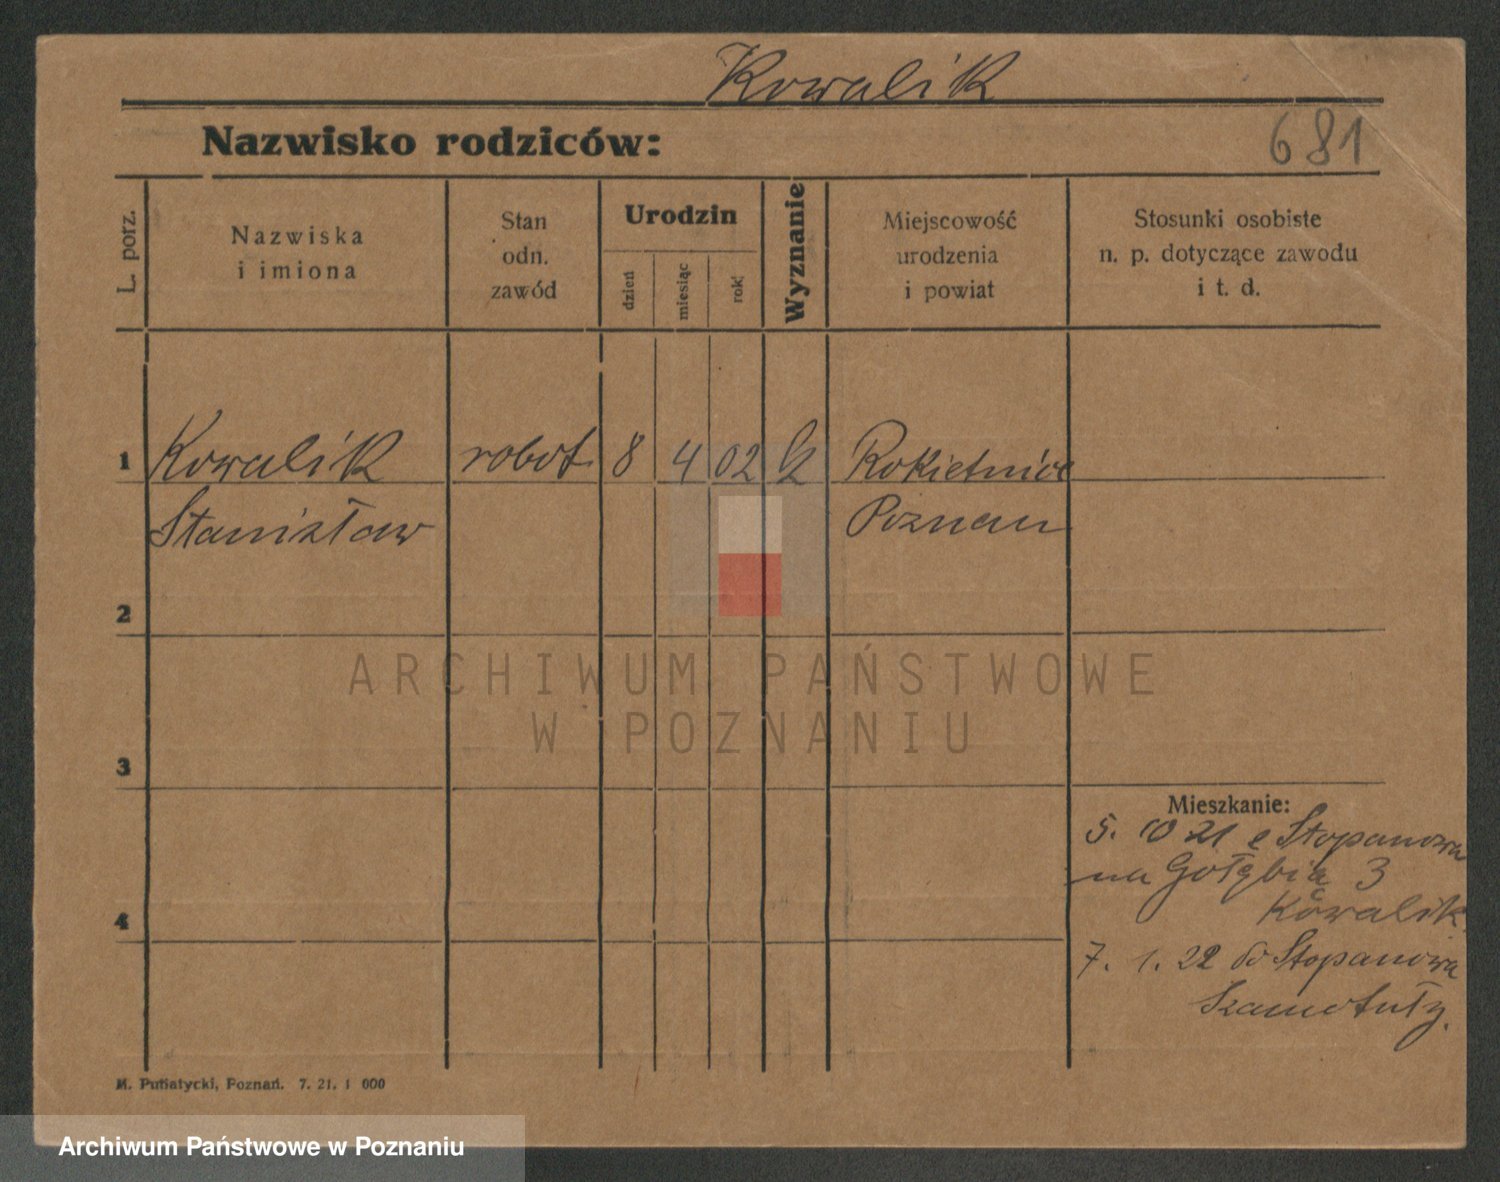 Kowalik
Nazwisko rodziców:
681
L. porz.
Nazwiska
i imiona
Stan
odn.
zawód
Urodzin
dzień
miesiąc
rok
Wyznanie
Miejscowość
urodzenia
i powiat
Stosunki osobiste
n. p. dotyczące zawodu
i t. d.
1 Kowalik robot. 8 4 02 Rokietnica
Stanisław Poznań
2
3
4
Mieszkanie:
5. 10 21 Stopanowa
na Gołębią 3
Kowalik
7. 1. 22 do Stopanowa
Szamotuły.
M. Putiatycki, Poznań. 7. 21. 1 000
ARCHIWUM PAŃSTWOWE
W POZNANIU
Archiwum Państwowe w Poznaniu